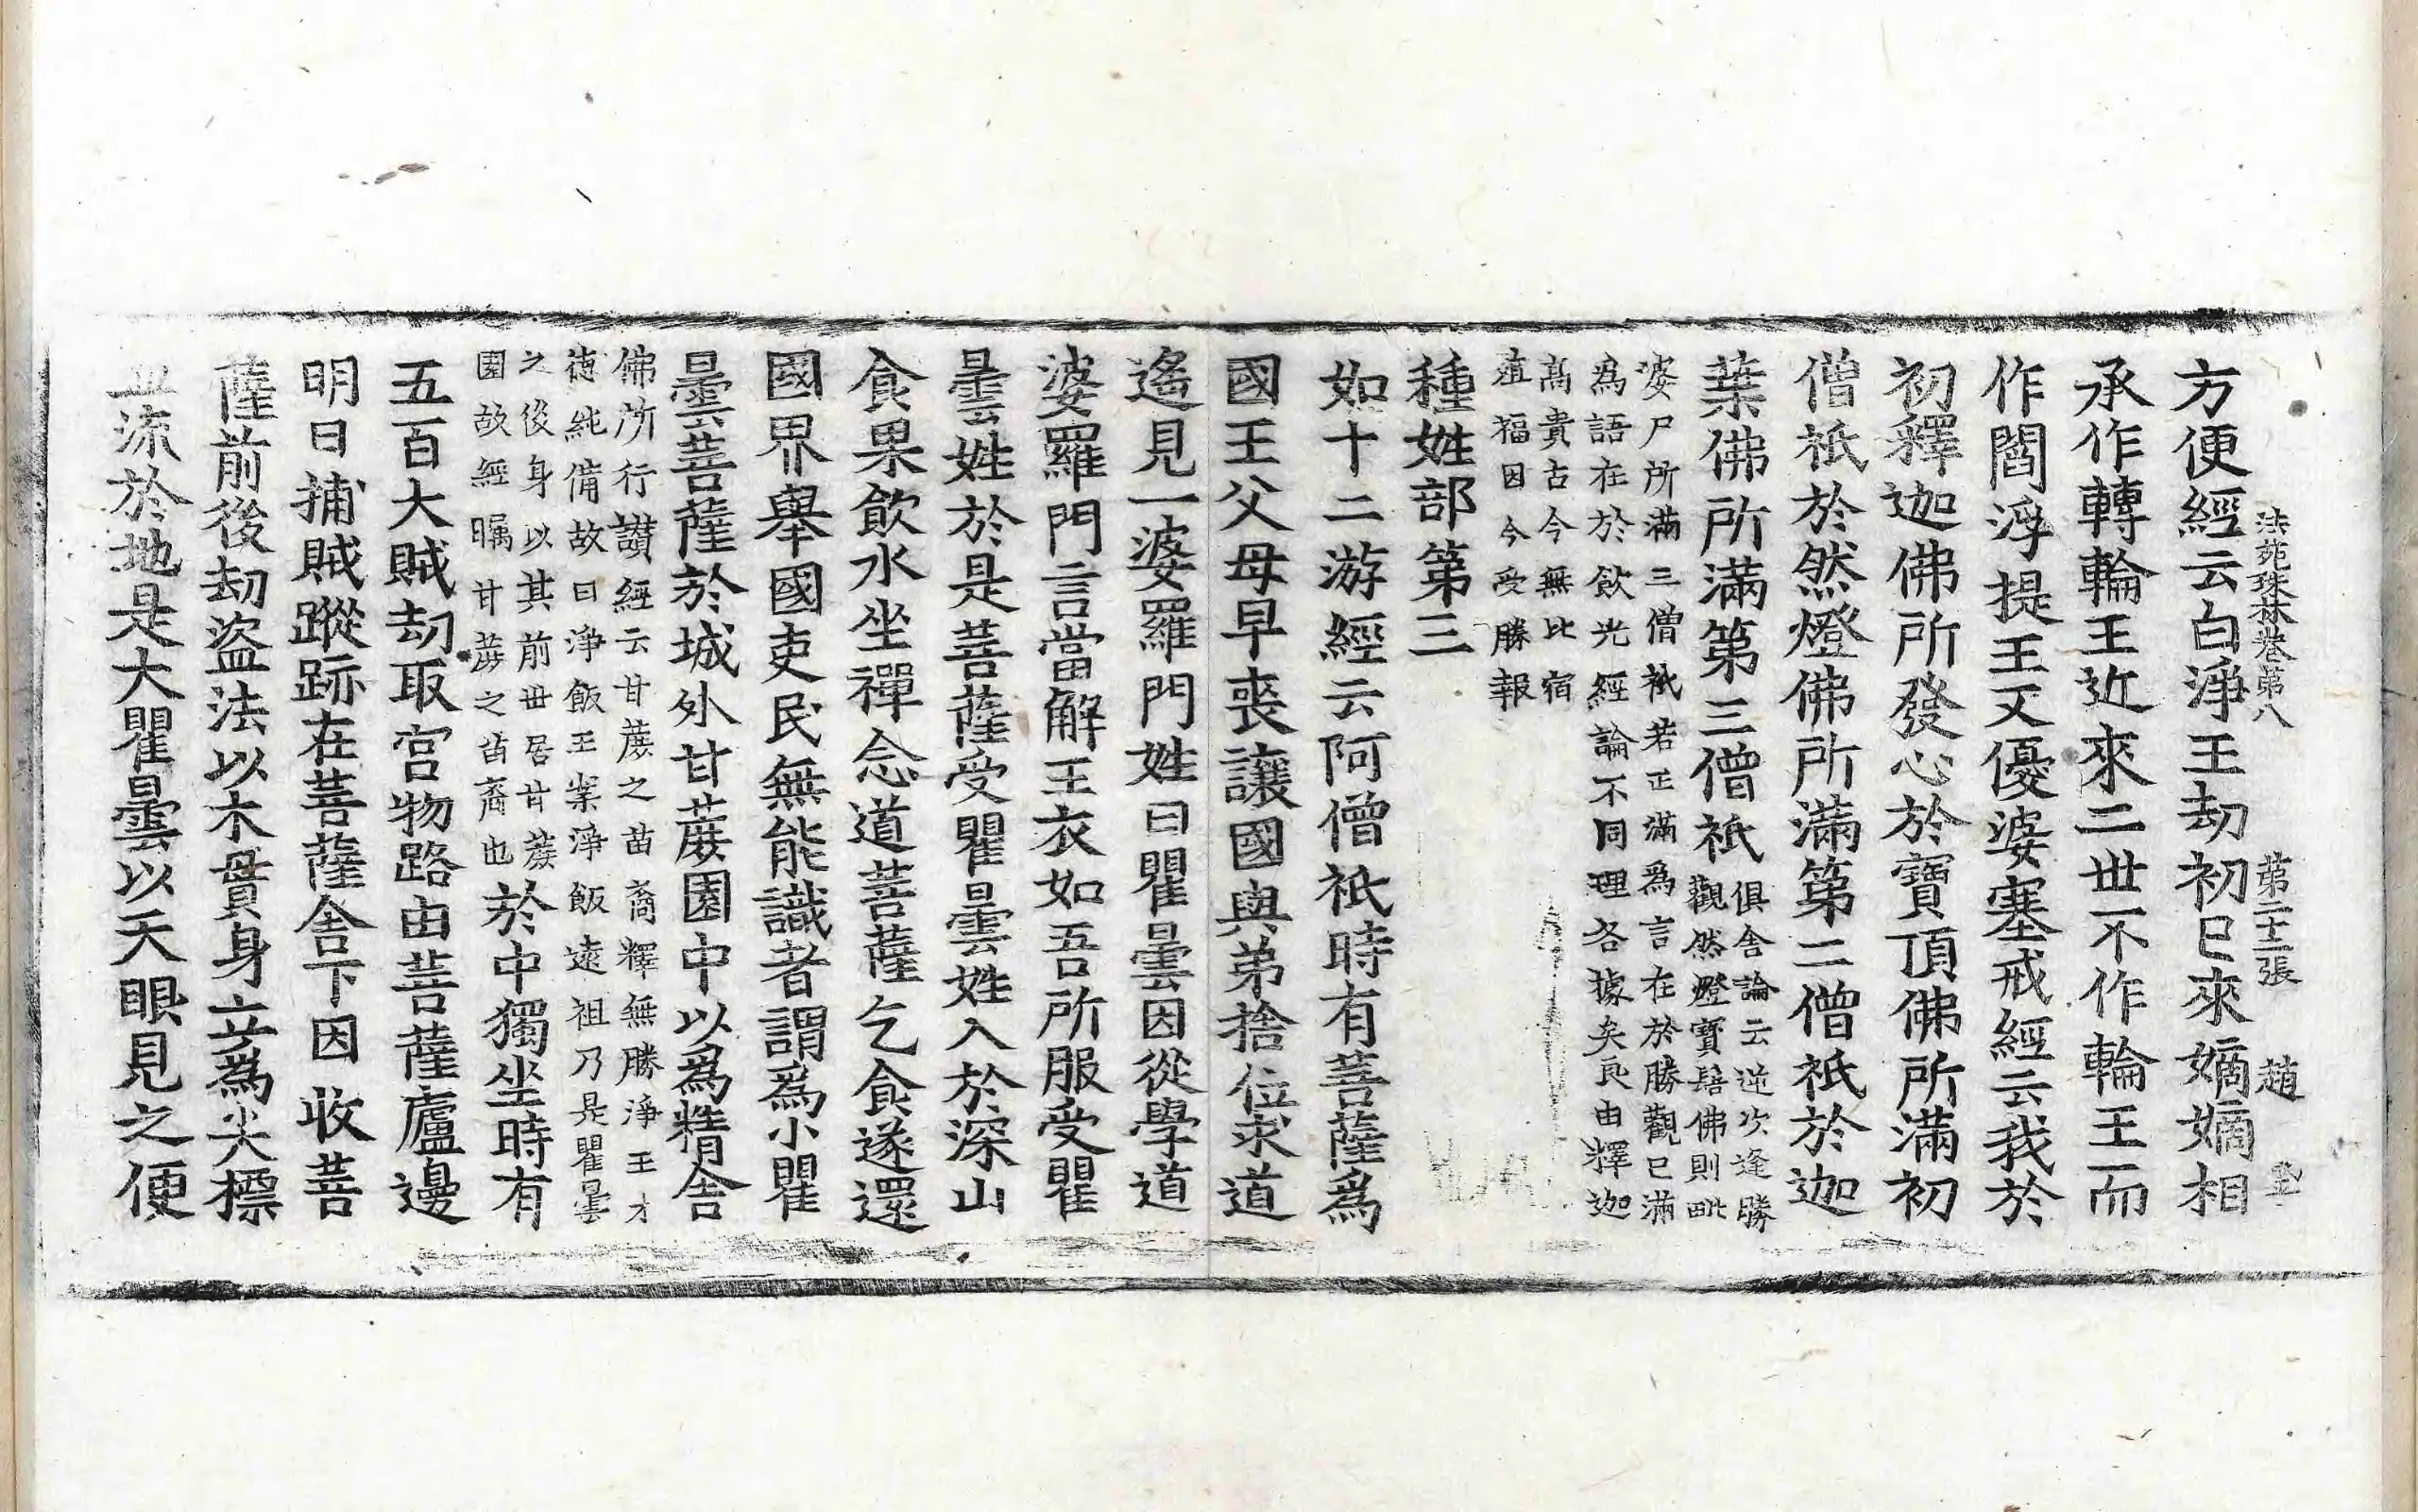 法苑珠林卷第八　第二十二張　趙
方便經云白淨王劫初已來嫡嫡相
承作轉輪王近來二世不作輪王而
作閻浮提王又優婆塞戒經云我於
初釋迦佛所發心於寶頂佛所滿初
僧祇於然燈佛所滿第二僧祇於迦
葉佛所滿第三僧祇
俱舍論云逆次逢勝
觀然燈寶髻佛則毗
婆尸所滿三僧祇若正滿為言在於勝觀已滿
為語在於飲光經論不同理各據矣良由釋迦
高貴古今無比宿
殖福因今受勝報
種姓部第三
如十二游經云阿僧祇時有菩薩為
國王父母早喪讓國與弟捨位求道
遙見一婆羅門姓曰瞿曇因從學道
婆羅門言當解王衣如吾所服受瞿
曇姓於是菩薩受瞿曇姓入於深山
食果飲水坐禪念道菩薩乞食遂還
國界舉國吏民無能識者謂為小瞿
曇菩薩於城外甘蔗園中以為精舍
佛所行讚經云甘蔗之苗裔釋無勝淨王才
德純備故曰淨飯王案淨飯遠祖乃是瞿曇
之後身以其前世居甘蔗
園故經矚甘蔗之苗裔也
於中獨坐時有
五百大賊劫取官物路由菩薩廬邊
明日捕賊蹤跡在菩薩舍下因收菩
薩前後劫盜法以木貫身立為尖標
血流於地是大瞿曇以天眼見之便